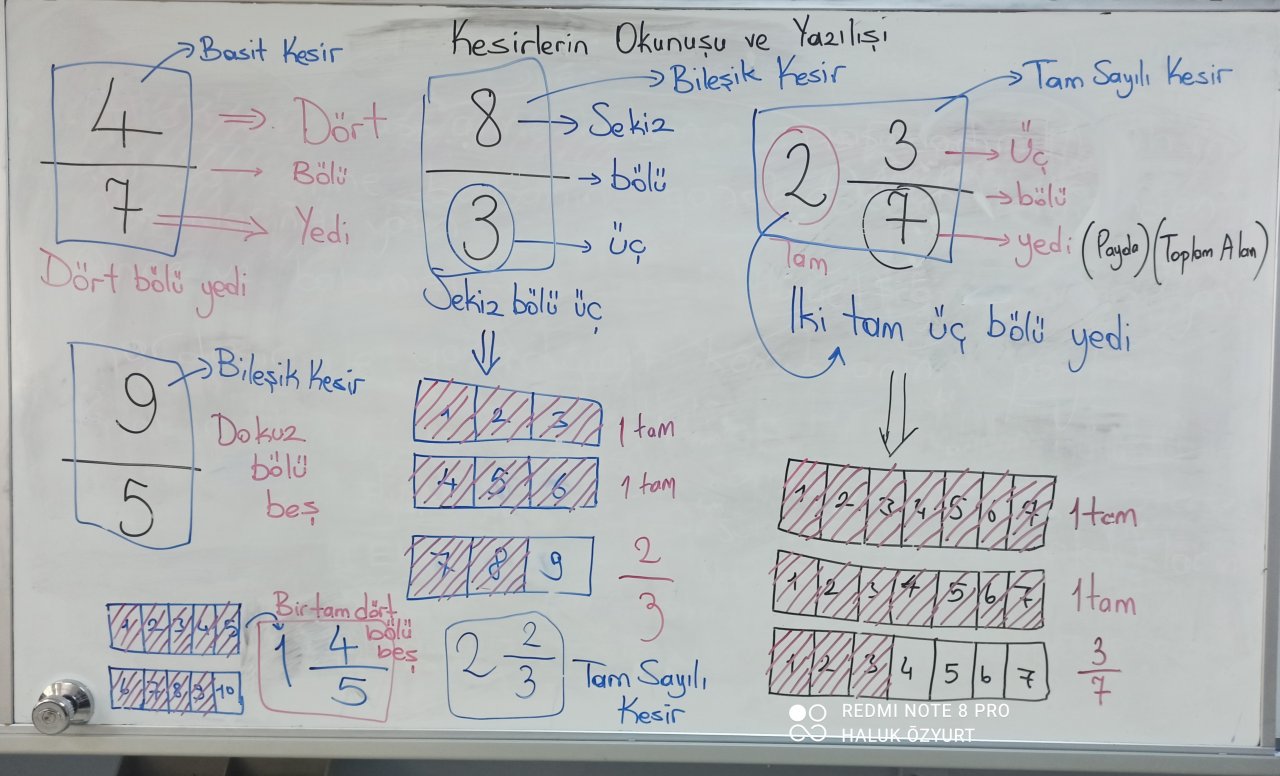 Kesirlerin Okunuşu ve Yazılışı
Basit Kesir
4
7
Dört
Bölü
Yedi
Dört bölü yedi
Bileşik Kesir
8
3
Sekiz
bölü
üç
Sekiz bölü üç
Tam Sayılı Kesir
2 3
7
Tam
üç
bölü
yedi (Payda) (Toplam Alan)
Iki tam üç bölü yedi
9
5
Bileşik Kesir
Dokuz
bölü
beş
1 2 3 4 5
6 7 8 9 10
Bir tam dört
bölü
beş
1 4
5
1 2 3 1 tam
4 5 6 1 tam
7 8 9
2
3
2 2
3
Tam Sayılı
Kesir
1 2 3 4 5 6 7 1 tam
1 2 3 4 5 6 7 1 tam
1 2 3 4 5 6 7
3
7
REDMI NOTE 8 PRO
HALUK ÖZYURT